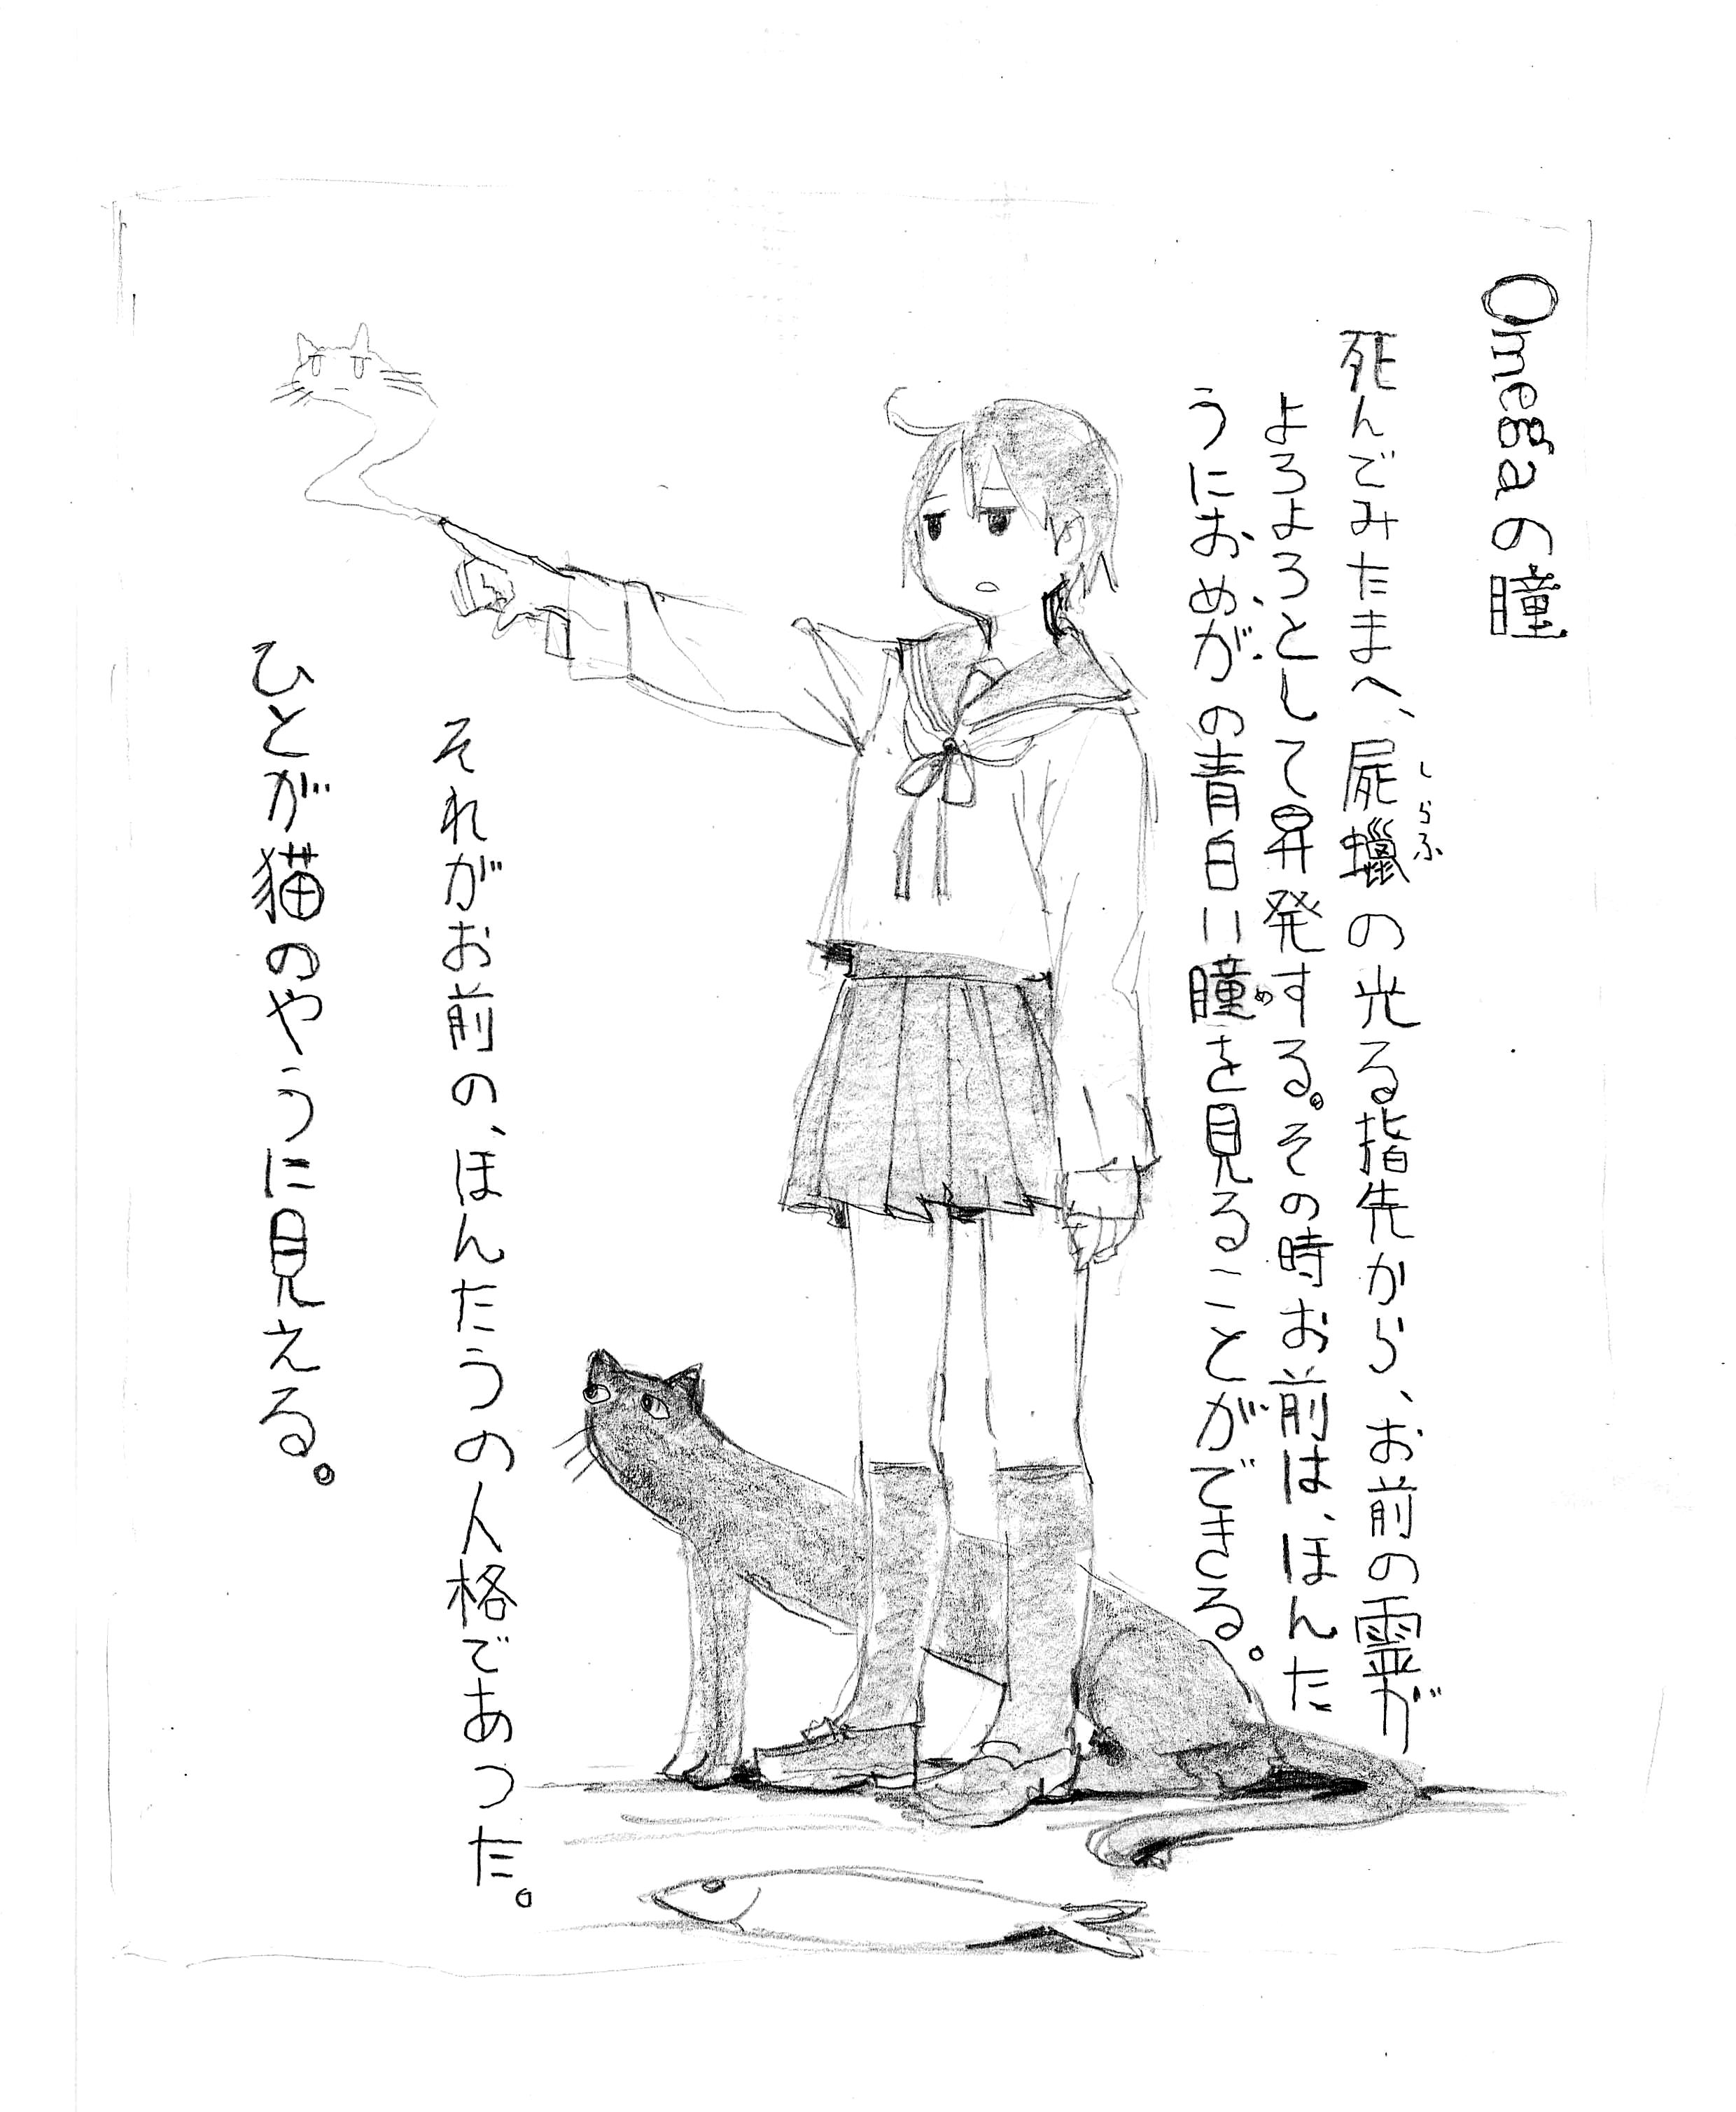 Omegaの瞳
死んでみたまへ、屍蠟の光る指先から、お前の霊が
しらふ
よろよろとして昇発する。その時お前は、ほんた
うにおめがの青白い瞳を見ることができる。
め
それがお前の、ほんたうの人格であつた。
ひとが猫のやうに見える。